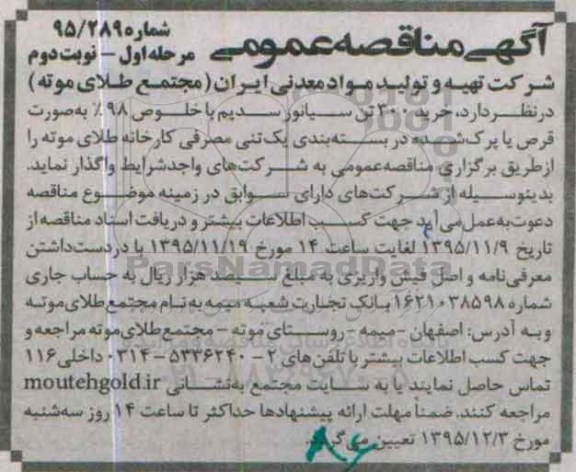 آگهی مناقصه عمومی
شماره ۹۵/۲۸۹
مرحله اول - نوبت دوم
شرکت تهیه و تولید مواد معدنی ایران (مجتمع طلای موته)
در نظر دارد، خرید ۳۰۰ تن سیانور سدیم با خلوص ۹۸٪ به صورت
قرص یا پرک شده در بسته‌بندی یک تنی مصرفی کارخانه طلای موته را
از طریق برگزاری مناقصه عمومی به شرکت‌های واجد شرایط واگذار نماید.
بدینوسیله از شرکت‌های دارای سوابق در زمینه موضوع مناقصه
دعوت به عمل می آید جهت کسب اطلاعات بیشتر و دریافت اسناد مناقصه از
تاریخ ۱۳۹۵/۱۱/۹ لغایت ساعت ۱۴ مورخ ۱۳۹۵/۱۱/۱۹ با در دست داشتن
معرفی نامه و اصل فیش واریزی به مبلغ سیصد هزار ریال به حساب جاری
شماره ۱۶۲۱۰۳۸۵۹۸ بانک تجارت شعبه میمه به نام مجتمع طلای موته
و به آدرس: اصفهان - میمه - روستای موته - مجتمع طلای موته مراجعه و
جهت کسب اطلاعات بیشتر با تلفن های ۲ - ۵۳۳۶۲۴۰ - ۰۳۱۴ داخلی ۱۱۶
تماس حاصل نمایند یا به سایت مجتمع به نشانی moutehgold.ir
مراجعه کنند. ضمنا مهلت ارائه پیشنهادها حداکثر تا ساعت ۱۴ روز سه‌شنبه
مورخ ۱۳۹۵/۱۲/۳ تعیین می گردد.
ParsNamadData